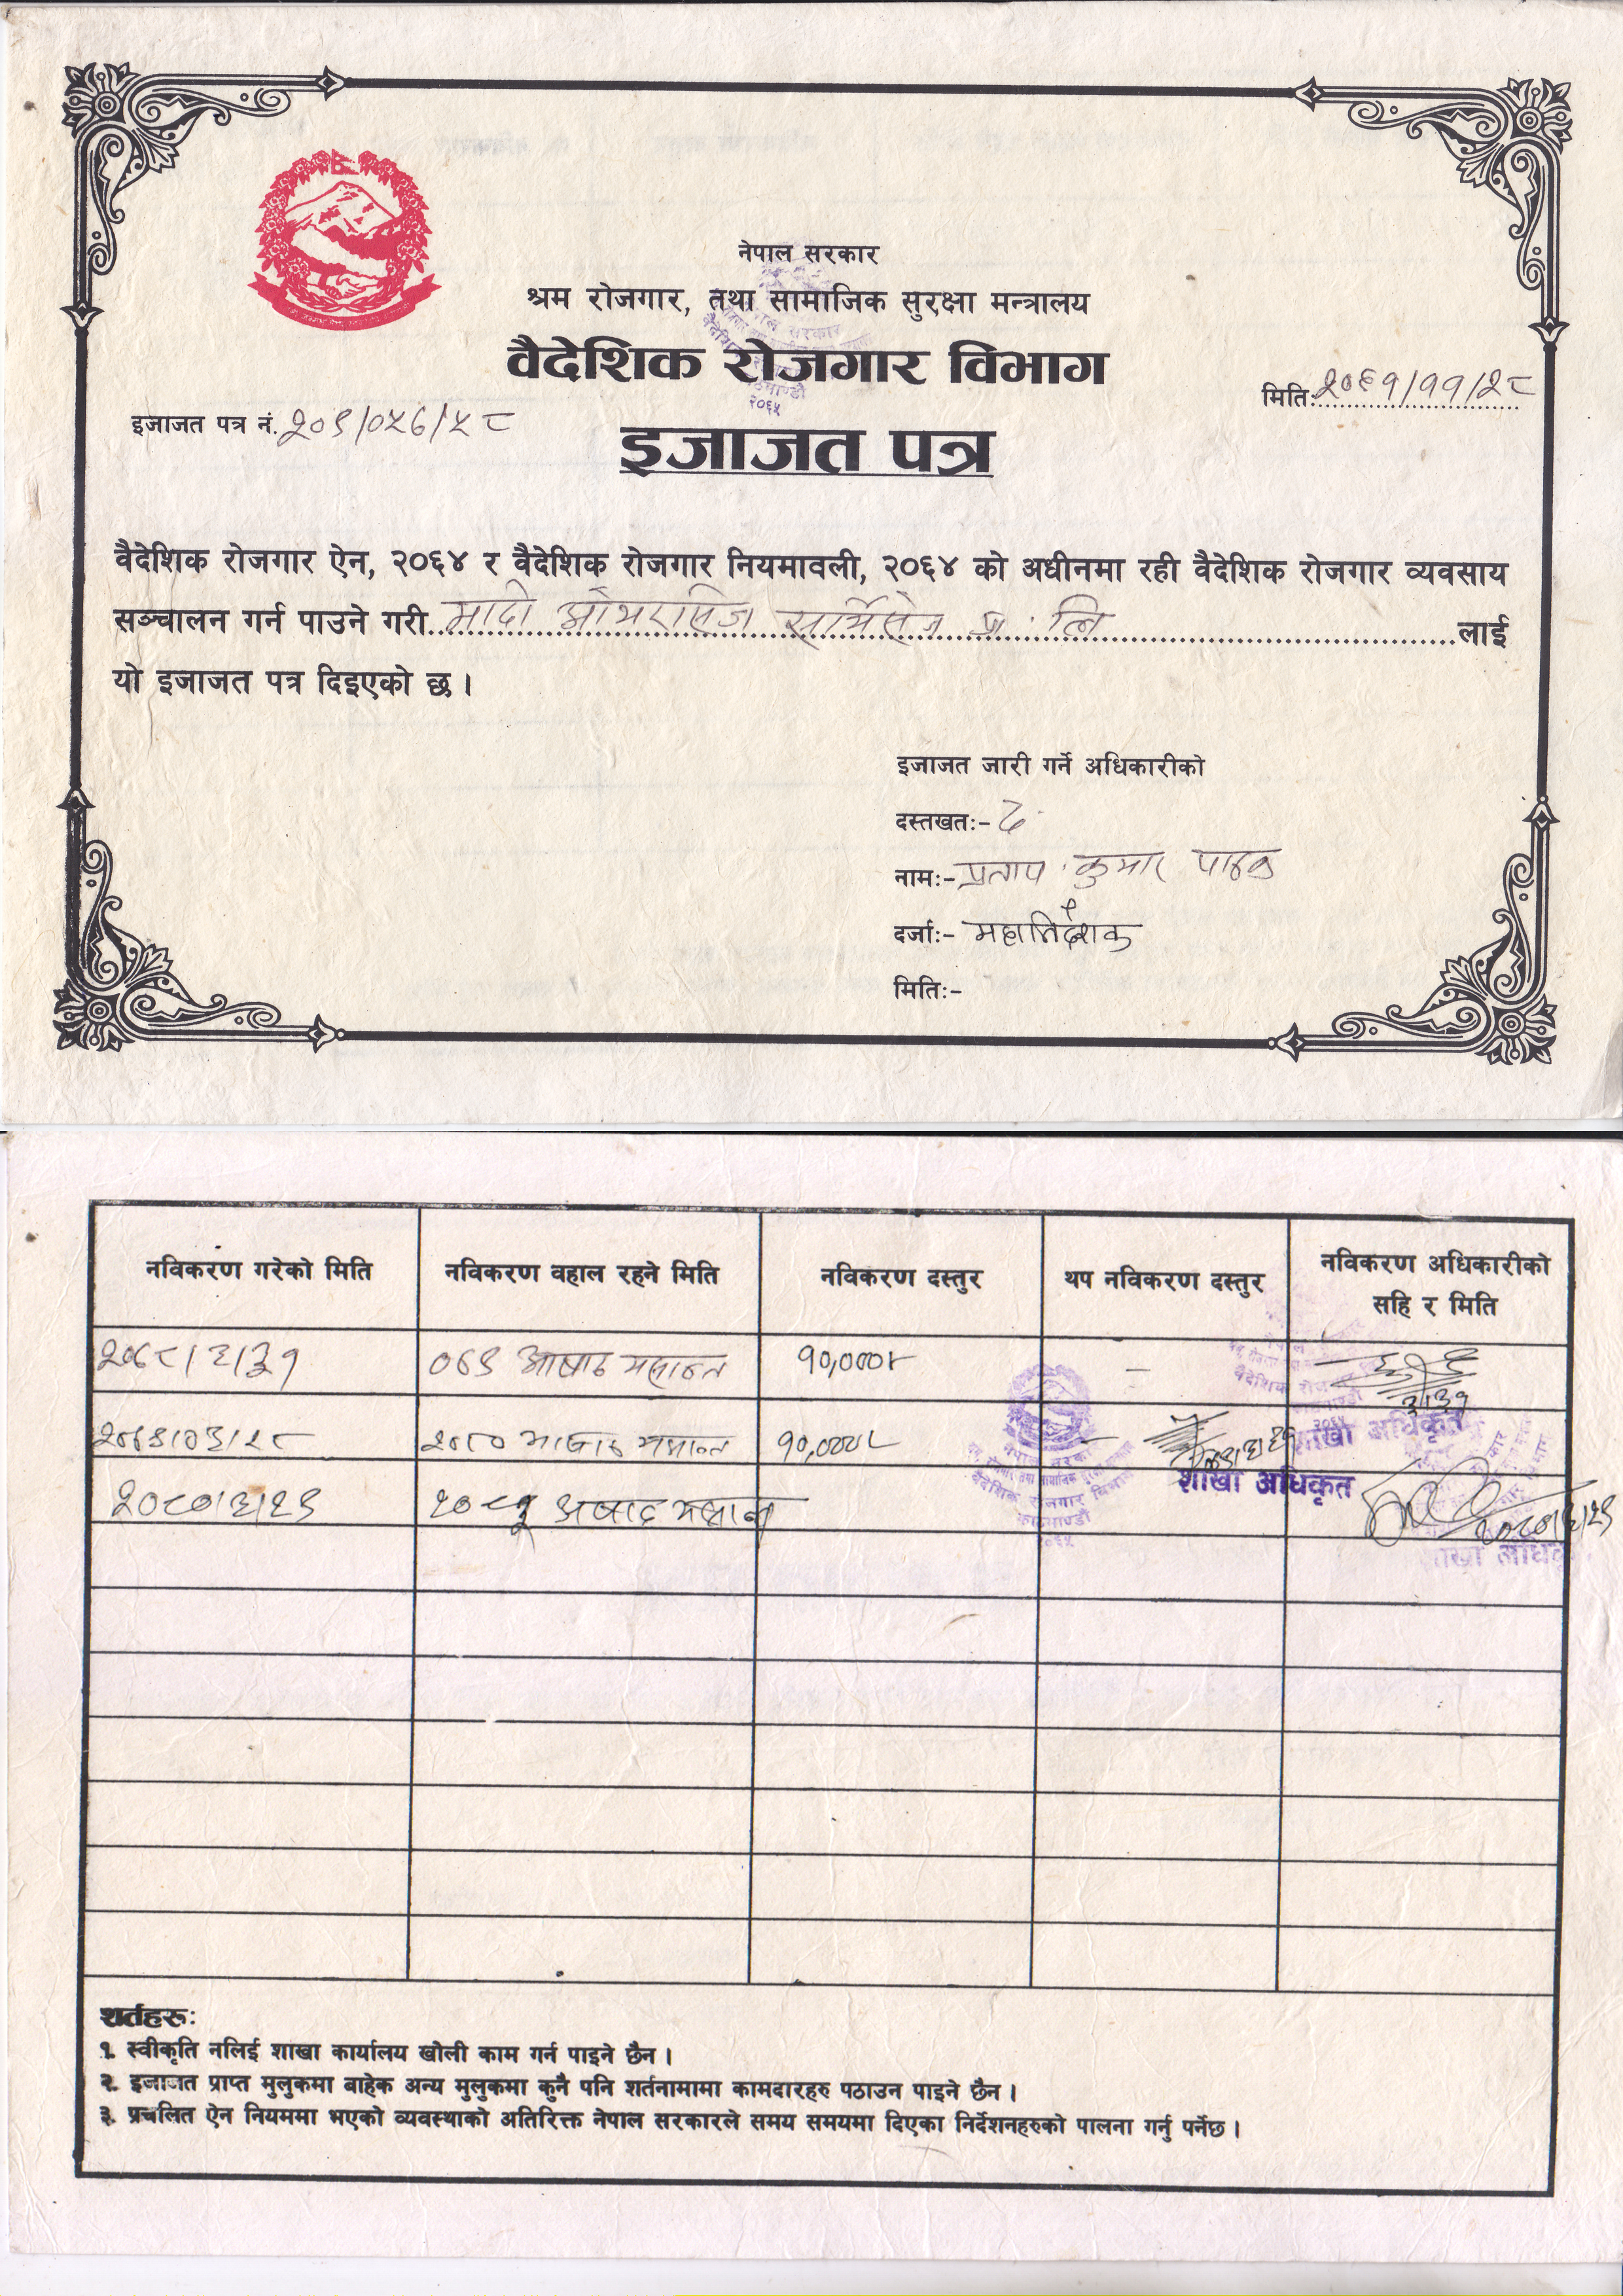 नेपाल सरकार
श्रम रोजगार, तथा सामाजिक सुरक्षा मन्त्रालय
वैदेशिक रोजगार विभाग
मिति:२०६१/११/२८
इजाजत पत्र नं.
इजाजत पत्र
वैदेशिक रोजगार ऐन, २०६४ र वैदेशिक रोजगार नियमावली, २०६४ को अधीनमा रही वैदेशिक रोजगार व्यवसाय
सञ्चालन गर्न पाउने गरी मादी ओभरसिज सर्भिसेज प्रा. लि लाई
यो इजाजत पत्र दिइएको छ ।
इजाजत जारी गर्ने अधिकारीको
दस्तखतः- द.
नामः- प्रताप कुमार पाठक
दर्जाः- महानिर्देशक
मितिः-
नविकरण गरेको मिति नविकरण वहाल रहने मिति नविकरण दस्तुर थप नविकरण दस्तुर नविकरण अधिकारीको
सहि र मिति
२०७८।३।३१ ०७९ आषाढ मसान्त १०,०००।- -
३।३१
शाखा अधिकृत
२०७९।०३।२८ २०८० आषाढ मसान्त १०,०००।- -
शाखा अधिकृत
२०८०।३।२९ अषाढ मसान्त २०८०।३।२९
शाखा
शर्तहरू:
१. स्वीकृति नलिई शाखा कार्यालय खोली काम गर्न पाइने छैन ।
२. इजाजत प्राप्त मुलुकमा बाहेक अन्य मुलुकमा कुनै पनि शर्तनामामा कामदारहरु पठाउन पाइने छैन ।
३. प्रचलित ऐन नियममा भएको व्यवस्थाको अतिरिक्त नेपाल सरकारले समय समयमा दिएका निर्देशनहरुको पालना गर्नु पर्नेछ ।